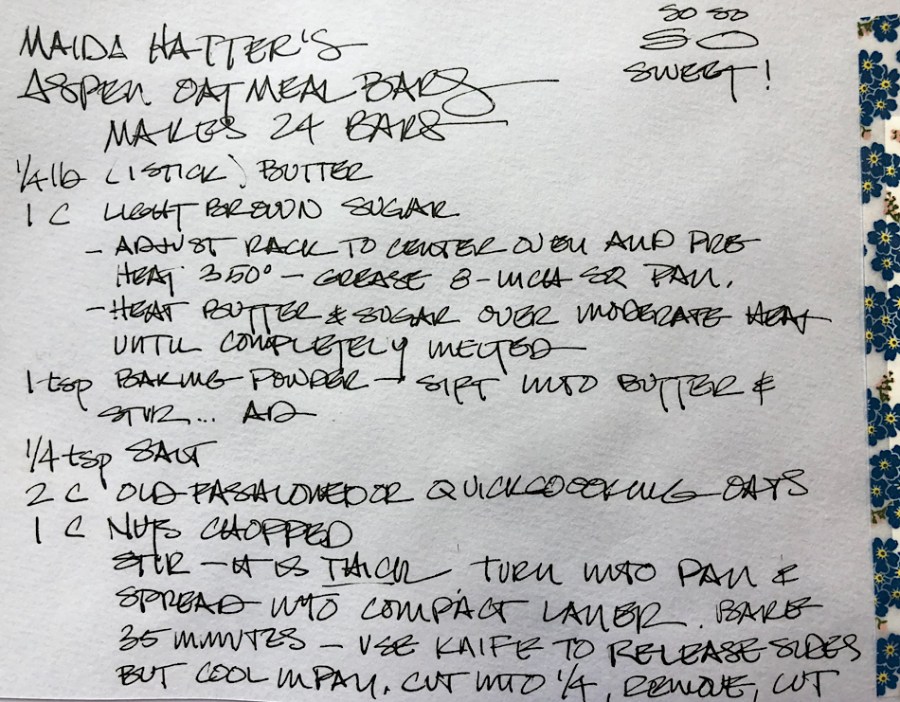 MAIDA HATTER'S
ASPEN OATMEAL BARS
MAKES 24 BARS
SO SO
SO
SWEET!
1/4 lb (1 STICK) BUTTER
1 C LIGHT BROWN SUGAR
- ADJUST RACK TO CENTER OVEN AND PRE-
HEAT 350° - GREASE 8-INCH SQ PAN.
- HEAT BUTTER & SUGAR OVER MODERATE HEAT
UNTIL COMPLETELY MELTED
1 tsp BAKING POWDER - SIFT INTO BUTTER &
STIR... AD
1/4 tsp SALT
2 C OLD-FASHIONED OR QUICKCOOOKING OATS
1 C NUTS CHOPPED
STIR - IT IS THICK TURN INTO PAN &
SPREAD INTO COMPACT LAYER. BAKE
35 MINUTES - USE KNIFE TO RELEASE SIDES
BUT COOL IN PAN. CUT INTO 1/4, REMOVE, CUT